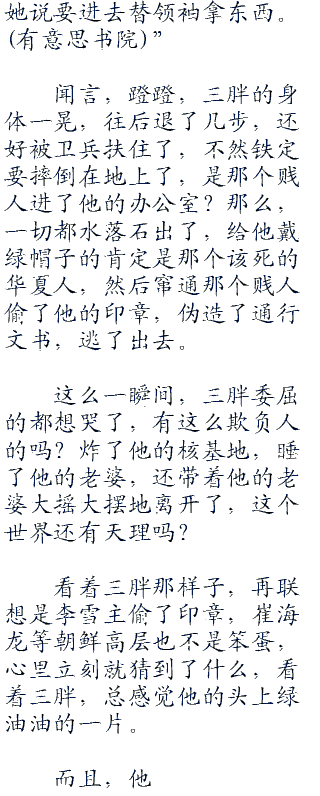 她说要进去替领袖拿东西。
(有意思书院)”
闻言，蹬蹬，三胖的身
体一晃，往后退了几步，还
好被卫兵扶住了，不然铁定
要摔倒在地上了，是那个贱
人进了他的办公室？那么，
一切都水落石出了，给他戴
绿帽子的肯定是那个该死的
华夏人，然后窜通那个贱人
偷了他的印章，伪造了通行
文书，逃了出去。
这么一瞬间，三胖委屈
的都想哭了，有这么欺负人
的吗？炸了他的核基地，睡
了他的老婆，还带着他的老
婆大摇大摆地离开了，这个
世界还有天理吗？
看着三胖那样子，再联
想是李雪主偷了印章，崔海
龙等朝鲜高层也不是笨蛋，
心里立刻就猜到了什么，看
着三胖，总感觉他的头上绿
油油的一片。
而且，他